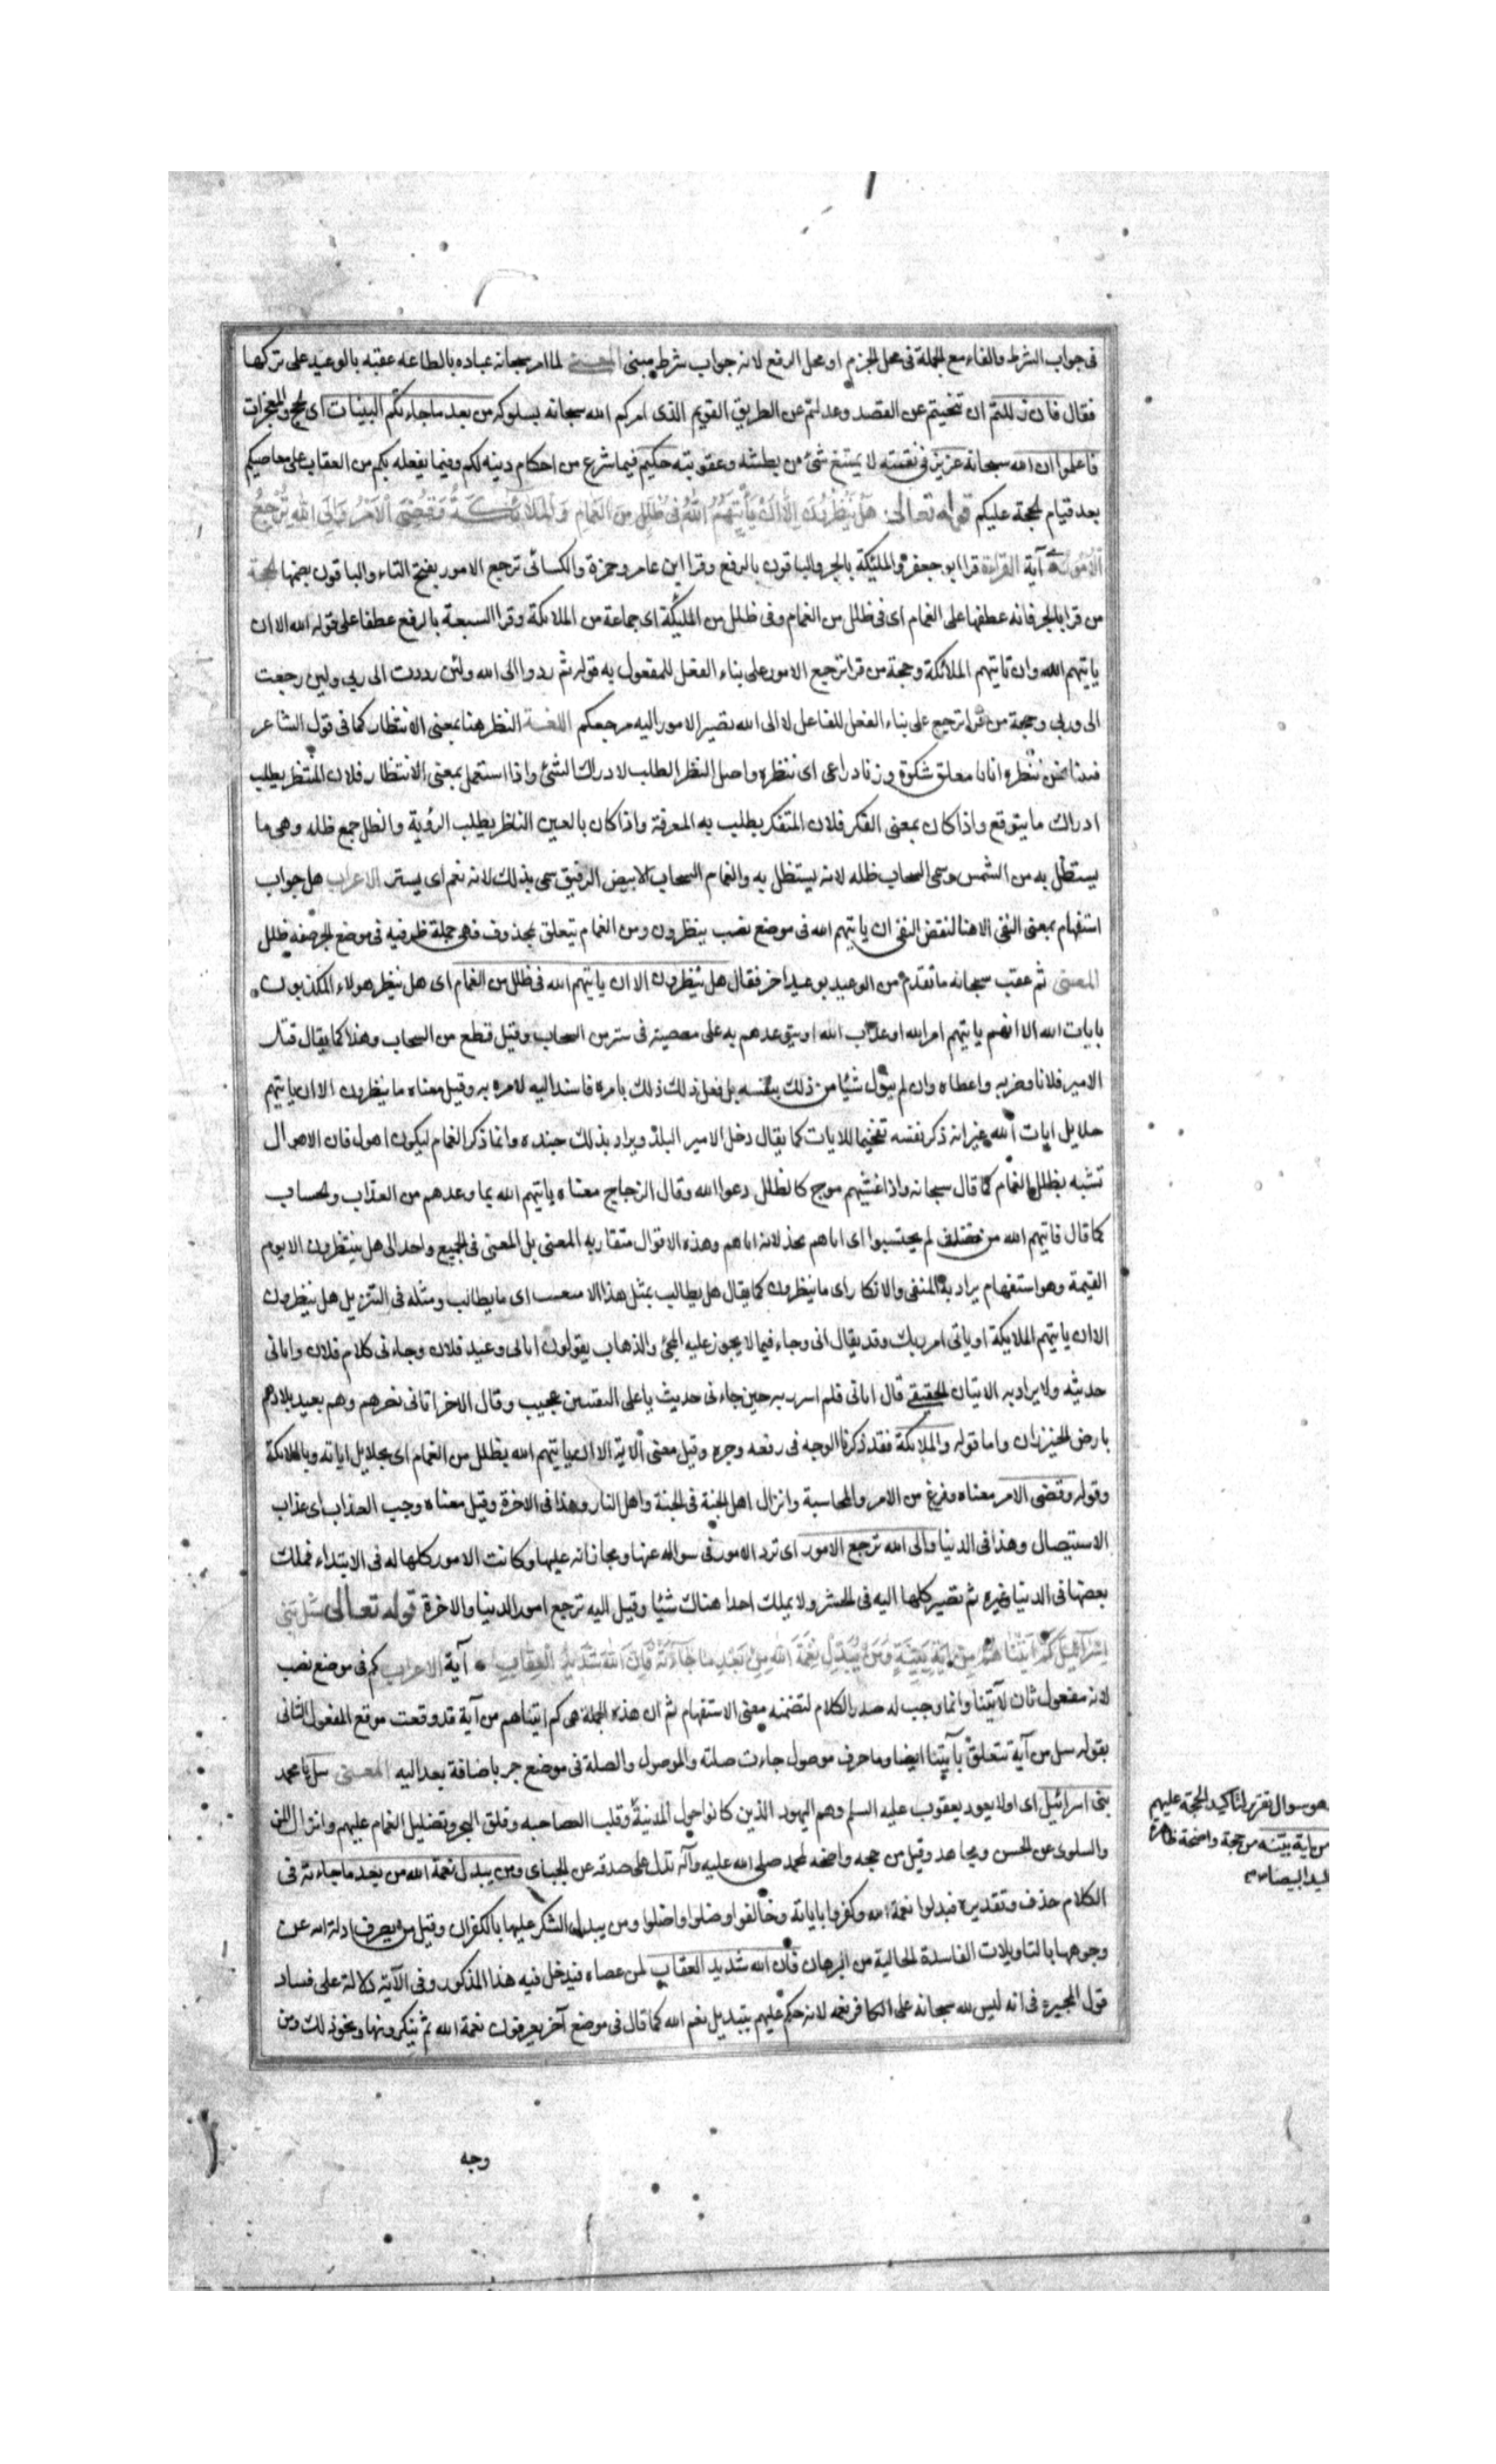 فى جواب الشرط والفاء مع الجملة فى محل الجزم او محل الرفع لانه جواب شرط مبنى المعنى لما امر سبحانه عباده بالطاعه عقبه بالوعيد على تركها
فقال فان زللتم ان تنحيتم عن القصد وعدلتم عن الطريق القويم الذى امركم الله سبحانه بسلوكه من بعد ما جاءتكم البينات اى الحجج والمعجزات
فاعلموا ان الله سبحانه عزيز فى نقمته لا يمتنع شئ من بطشه وعقوبته حكيم فيما شرع من احكام دينه لكم وفيما يفعله بكم من العقاب على معاصيكم
بعد قيام الحجة عليكم قوله تعالى هَلْ يَنْظُرُونَ اِلَّا اَنْ يَأْتِيَهُمُ اللهُ فى ظُلَلٍ مِنَ الْغَمَامِ وَالْمَلَائِكَةُ وَقُضِىَ الْاَمْرُ وَاِلَى اللهِ تُرْجَعُ
الْاُمُورُ آية القراءة قرا ابو جعفر والملئكة بالجر والباقون بالرفع وقرا ابن عامر وحمزة والكسائى ترجع الامور بفتح التاء والباقون بضمها الحجة
من قرا بالجر فانه عطفها على الغمام اى فى ظلل من الغمام وفى ظلل من الملئكة اى جماعة من الملائكة وقرا السبعة بالرفع عطفا على قوله الله الا ان
ياتيهم الله وان تاتيهم الملائكة وحجة من قرا ترجع الامور على بناء الفعل للمفعول به قوله ثم ردوا الى الله ولئن رددت الى ربى ولين رجعت
الى وربى وحجة من قرا ترجع على بناء الفعل للفاعل لا الى الله تصير الامور اليه مرجعكم اللغة النظر هنا بمعنى الانتظار كما فى قول الشاعر
فبينا نحن ننظره اتانا معلق شكوة وزناد راعى اى ننتظره واصل النظر الطلب لادراك الشئ واذا استعمل بمعنى الانتظار فلان المنتظر يطلب
ادراك ما يتوقع واذا كان بمعنى الفكر فلان المتفكر يطلب به المعرفة واذا كان بالعين الناظر يطلب الرؤية والظلل جمع ظله وهى ما
يستظل به من الشمس وسمى السحاب ظله لانه يستظل به والغمام السحاب الابيض الرقيق سمى بذلك لانه نغم اى يستر الاعراب هل جواب
استفهام بمعنى النفى الا هنا لنقض النفى ان ياتيهم الله فى موضع نصب بينظرون ومن الغمام يتعلق بمحذوف فهى جملة ظرفيه فى موضع الجر صفه ظلل
المعنى ثم عقب سبحانه ما تقدم من الوعيد بوعيد اخر فقال هل ينظرون الا ان ياتيهم الله فى ظلل من الغمام اى هل ينظر هولاء المكذبون
بايات الله الا انهم ياتيهم امر الله او عذاب الله او يتوعدهم به على معصيته فى ستر من السحاب وقيل قطع من السحاب وهذا كما يقال قتل
الامير فلانا وضربه واعطاه وان لم يتول شيئا من ذلك بنفسه بل فعل ذلك بامره فاسند اليه لامره به وقيل معناه ما ينظرون الا ان ياتيهم
جلايل ايات الله غير انه ذكر نفسه تفخيما للايات كما يقال دخل الامير البلد ويراد بذلك جنده وانما ذكر الغمام ليكون اهول فان الاهوال
تشبه بظلل الغمام كما قال سبحانه واذا غشيهم موج كالظلل دعوا الله وقال الزجاج معناه ياتيهم الله بما وعدهم من العذاب والحساب
كما قال فاتيهم الله من لم يحتسبوا اى اتاهم بخذلانه اياهم وهذه الاقوال متقاربه المعنى بل المعنى فى الجميع واحد الى هل ينتظرون الا يوم
القيمة وهو استفهام يراد به النفى والانكار اى ما ينظرون كما يقال هل يطالب بمثل هذا الا اى ما يطالب ومثله فى التنزيل هل ينظرون
الا ان ياتيهم الملايكة او ياتى امر ربك وقد يقال اتى وجاء فيما لا يجوز عليه المجئ والذهاب يقولون اتانى وعيد فلان وجاءنى كلام فلان واتانى
حديثه ولا يراد به الاتيان الحقيقى قال اتانى فلم اسرر به حين جاءنى حديث باعلى القنتين عجيب وقال الاخر اتانى نصرهم وهم بعيد بلادهم
بارض الخيزران واما قوله والملائكة فقد ذكرنا الوجه فى رفعه وجره وقيل معنى الاية الا ان ياتيهم الله بظلل من الغمام اى بجلايل اياته وبالملائكة
وقوله وقضى الامر معناه وفرغ من الامر والمحاسبة وانزال اهل الجنة فى الجنة واهل النار وهذا فى الاخرة وقيل معناه وجب العذاب اى عذاب
الاستيصال وهذا فى الدنيا والى الله ترجع الامور اى ترد الامور فى سواله عنها ومجازاته عليها وكانت الامور كلها له فى الابتداء فملك
بعضها فى الدنيا غيره ثم تصير كلها اليه فى الحشر ولا يملك احدا هناك شيئا وقيل اليه ترجع امور الدنيا والاخرة قوله تعالى سَلْ بَنى
اِسْرَآئيلَ كَمْ اٰتَيْنَاهُمْ مِنْ اٰيَةٍ بَيِّنَةٍ وَمَنْ يُبَدِّلْ نِعْمَةَ اللهِ مِنْ بَعْدِ مَا جَاءَتْهُ فَاِنَّ اللهَ شَديدُ الْعِقَابِ آية الاعراب كم فى موضع نصب
لانه مفعول ثان لآتينا وانما وجب له صدر الكلام لتضمنه معنى الاستفهام ثم ان هذه الجملة هى كم اتيناهم من آية قد وقعت موقع المفعول الثانى
بقوله سل من آية تتعلق بآتينا ايضا وما حرف موصول جاءت صلته والموصول والصلة فى موضع جر باضافة بعد اليه المعنى سل يا محمد
بنى اسرائيل اى اولا يعود يعقوب عليه السلم وهم اليهود الذين كانوا حول المدينة وقلب العصا حيه وفلق البحر وتضليل الغمام عليهم وانزال المن
والسلوى عن الحسن ومجاهد وقيل من حجه واضحه لمحمد صلى الله عليه وآله تدل على صدقه عن الجباى ومن يبدل نعمة الله من بعد ما جاءته فى
الكلام حذف وتقديره فبدلوا نعمة الله وكفروا باياته وخالفوا وضلوا واضلوا ومن يبدل الشكر عليها بالكفران وقيل من يصرف ادلة الله عن
وجوهها بالتاويلات الفاسدة الخالية من البرهان فان الله شديد العقاب لمن عصاه فيدخل فيه هذا المذكور وفى الآية دلالة على فساد
قول المجبره فى انه ليس لله سبحانه على الكافر نعمه لانه حكم عليهم بتبديل نعم الله كما قال فى موضع آخر يعرفون نعمة الله ثم ينكرونها ونحو ذلك ومن
هو سوال تقرير لتاكيد الحجة عليهم
من اية بينه من حجة واضحة ظاهرة
اليد البيضاء
وجه